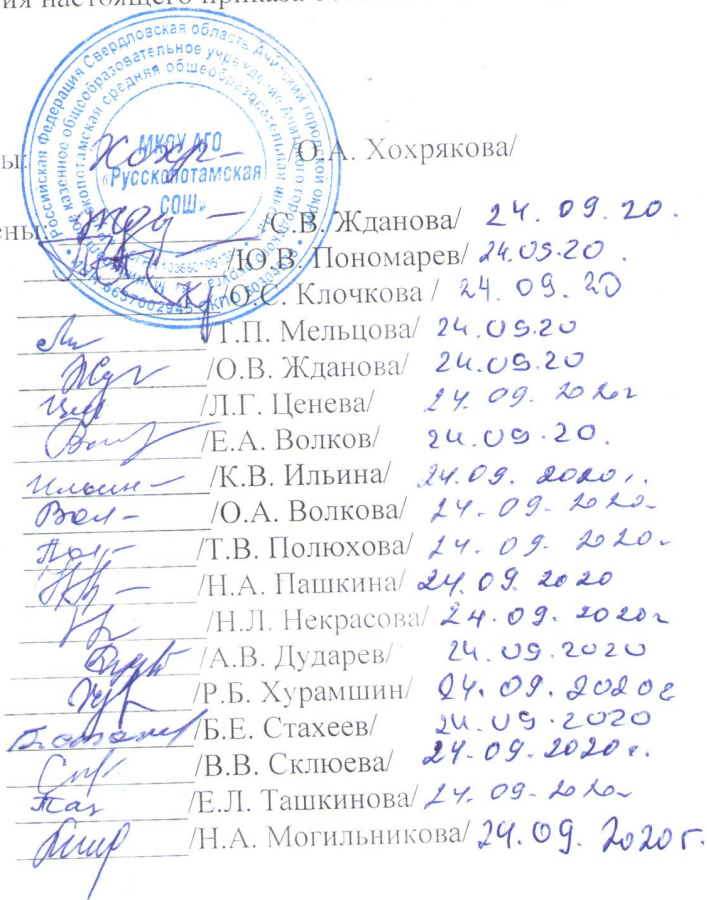 ия настоящего приказа
Российская Федерация Свердловская область Ачитский городской округ
казенное общеобразовательное учреждение Ачитского
средняя общеобразовательная
МКОУ АГО
«Русскопотамская
СОШ»
ы: Хохр /О.А. Хохрякова/
ены: /С.В. Жданова/ 24.09.20.
/Ю.В. Пономарев/ 24.09.20.
/О.С. Клочкова / 24.09.20
/Т.П. Мельцова/ 24.09.20
/О.В. Жданова/ 24.09.20
/Л.Г. Ценева/ 24.09.2020г
/Е.А. Волков/ 24.09.20.
Ильин /К.В. Ильина/ 24.09.2020г.
Вол /О.А. Волкова/ 24.09.2020г
/Т.В. Полюхова/ 24.09.2020г
/Н.А. Пашкина/ 24.09.2020
/Н.Л. Некрасова/ 24.09.2020г
/А.В. Дударев/ 24.09.2020
/Р.Б. Хурамшин/ 24.09.2020г
/Б.Е. Стахеев/ 24.09.2020
/В.В. Склюева/ 24.09.2020г.
Таш /Е.Л. Ташкинова/ 24.09.2020г
/Н.А. Могильникова/ 24.09.2020г.